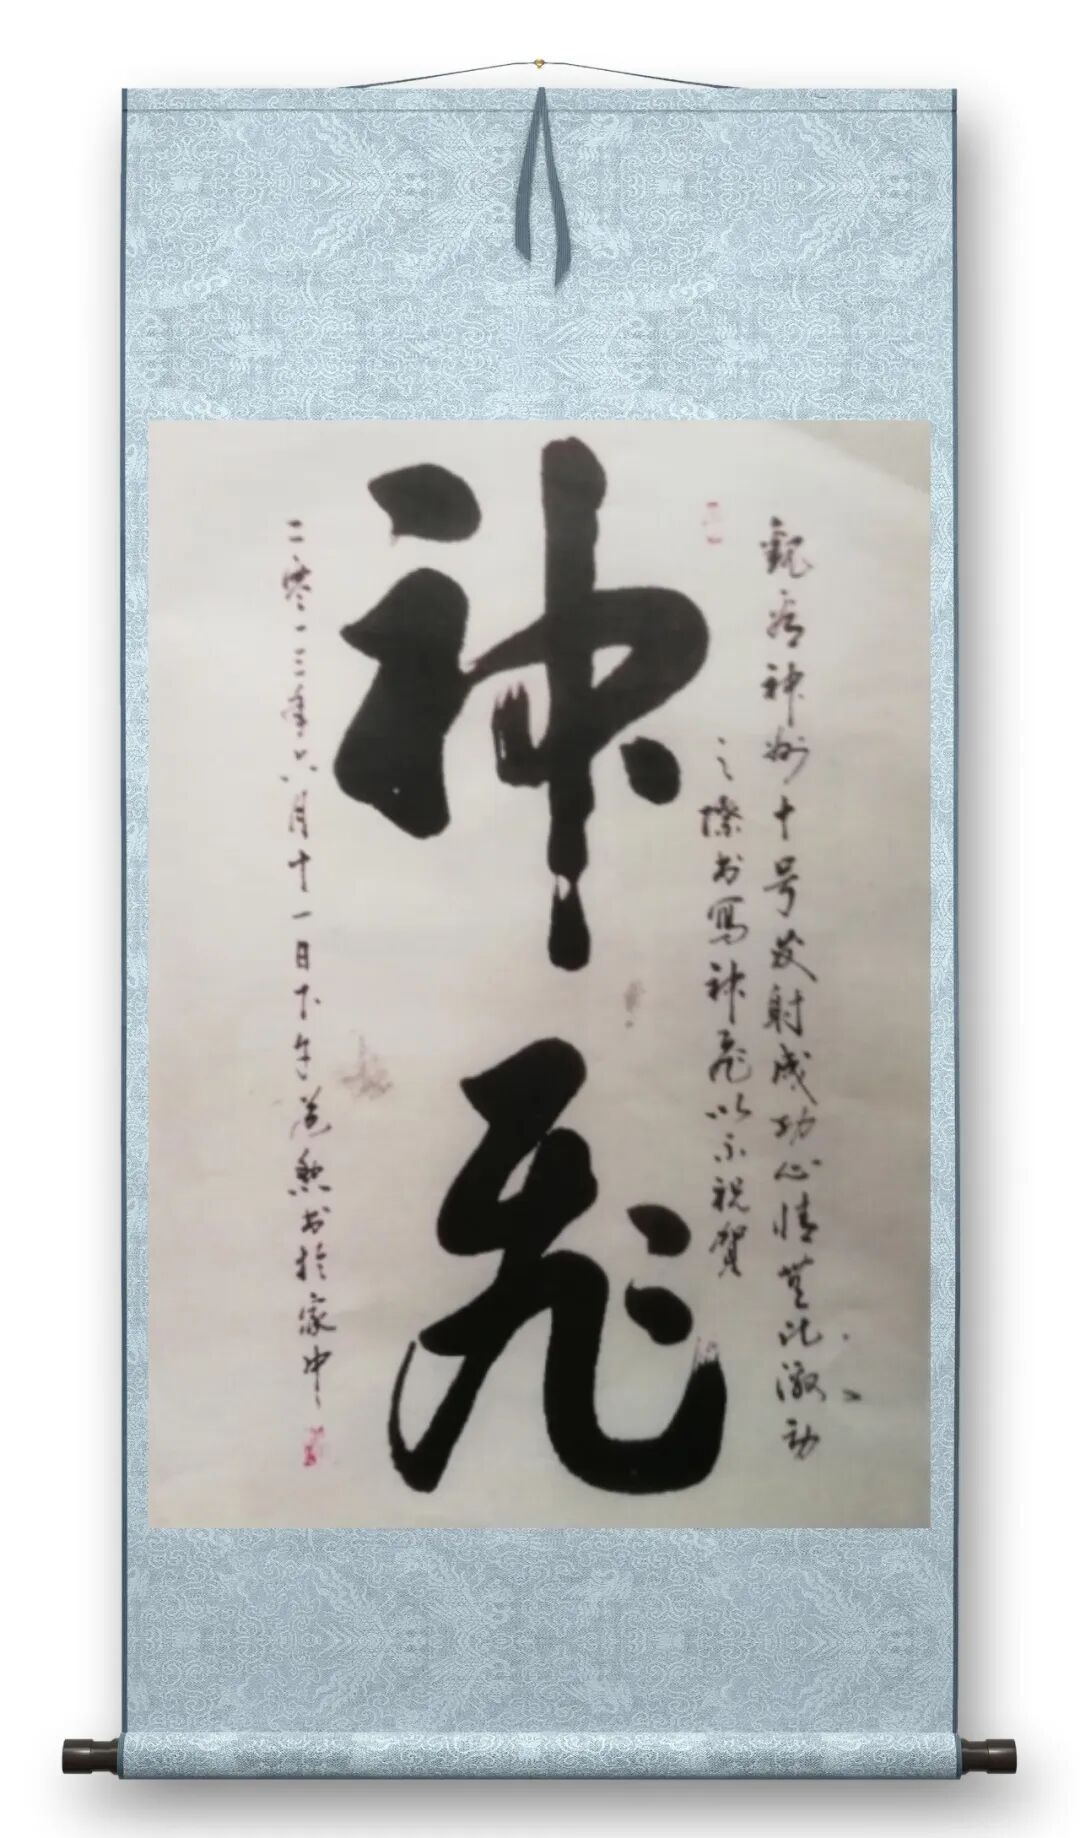 觀看神州十号发射成功心情無比激动
之際书寫神飛以示祝賀
神飛
二零一三年六月十一日下午书於家中